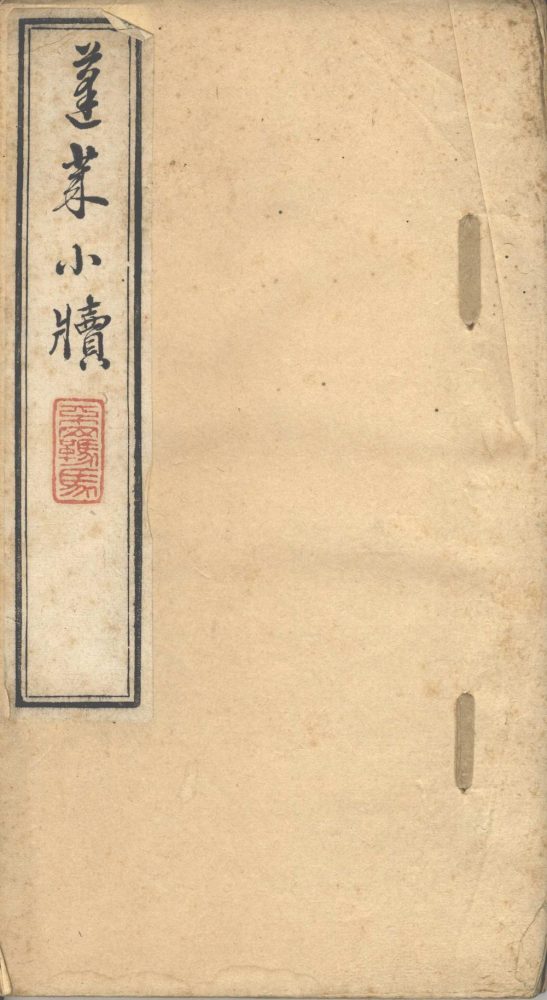 蓬萊小牘